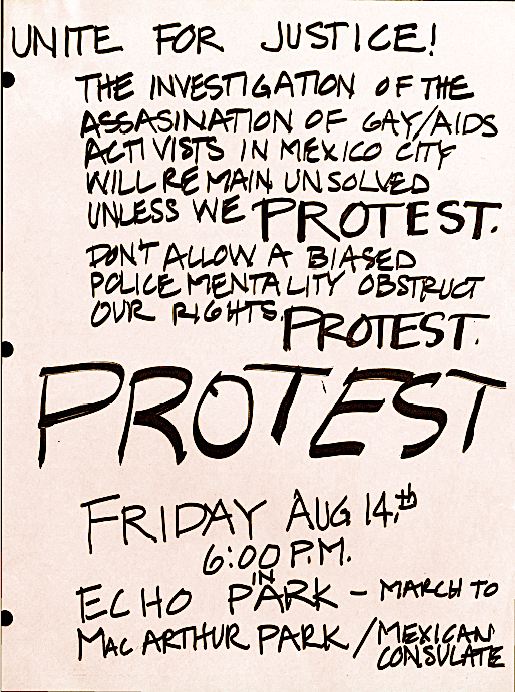 UNITE FOR JUSTICE!
THE INVESTIGATION OF THE
ASSASINATION OF GAY/AIDS
ACTIVISTS IN MEXICO CITY
WILL REMAIN UNSOLVED
UNLESS WE PROTEST.
DON'T ALLOW A BIASED
POLICE MENTALITY OBSTRUCT
OUR RIGHTS. PROTEST.
PROTEST
FRIDAY AUG 14,th
6:00 P.M.
IN
ECHO PARK - MARCH TO
MAC ARTHUR PARK / MEXICAN
CONSULATE